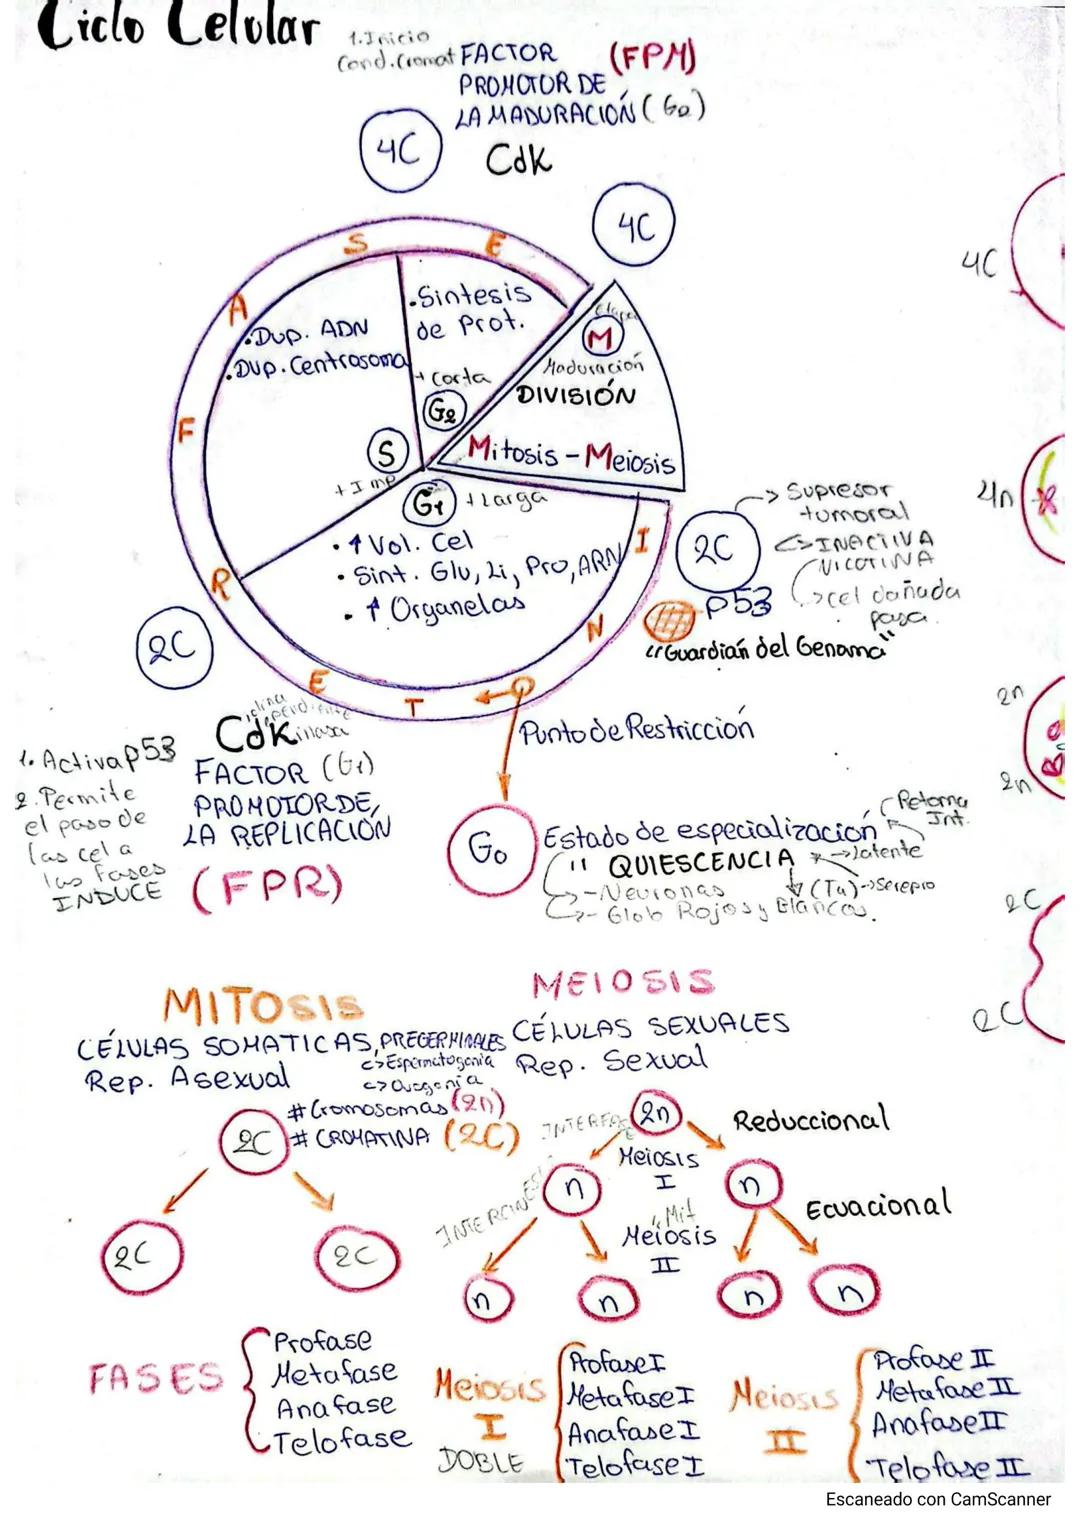 Ciclo Celular
1. Inicio
Cond. Cromat
FACTOR (FPM)
PROMOTOR DE
LA MADURACIÓN (G2)
Cdk
4C
4C
4C
INTERFASE
. Dup. ADN
. Dup. Centrosoma
S
+ Imp
. Sintesis
de Prot.
+ Corta
G2
Etapa
M
Maduración
DIVISIÓN
Mitosis - Meiosis
G1 + Larga
• ↑ Vol. Cel
• Sint. Glu, Li, Pro, ARN
• ↑ Organelas
2C
→ Supresor
tumoral
INACTIVA
NICOTINA
→ cel dañada
pasa.
P53
"Guardian del Genoma"
4n
2C
Cdk inasa
FACTOR (G1)
PROMOTOR DE
LA REPLICACIÓN
(FPR)
1. Activa p53
2. Permite
el paso de
las cel a
las fases
INDUCE
Punto de Restricción
G0
Estado de especialización
Retorna
Int.
" QUIESCENCIA → latente
- Neuronas
- Glob Rojos y Blancos.
2n
2n
2C
2C
MITOSIS
CÉLULAS SOMATICAS, PREGERMINALES
→ Espermatogonia
→ Ovogonia
Rep. Asexual
# Cromosomas (2n)
# CROMATINA (2C)
2C
2C
2C
MEIOSIS
CÉLULAS SEXUALES
Rep. Sexual
INTERFASE
2n
Reduccional
Meiosis
I
n
n
INTERCINESI
Ecuacional
"Mit
Meiosis
II
n
n
n
n
FASES
Profase
Metafase
Anafase
Telofase
Meiosis
I
DOBLE
Profase I
Metafase I
Anafase I
Telofase I
Meiosis
II
Profase II
Metafase II
Anafase II
Telofase II
Escaneado con CamScanner